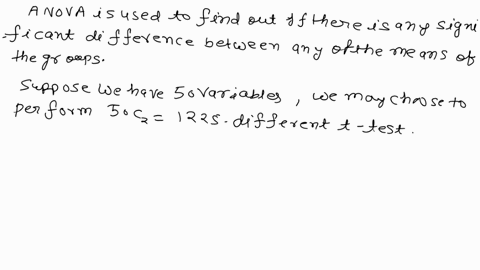 ANOVA is used to find out if there is any signi
ficant difference between any of the means of
the groups.
Suppose we have 50 variables, we may choose to
perform 50C2 = 1225. different t-test.